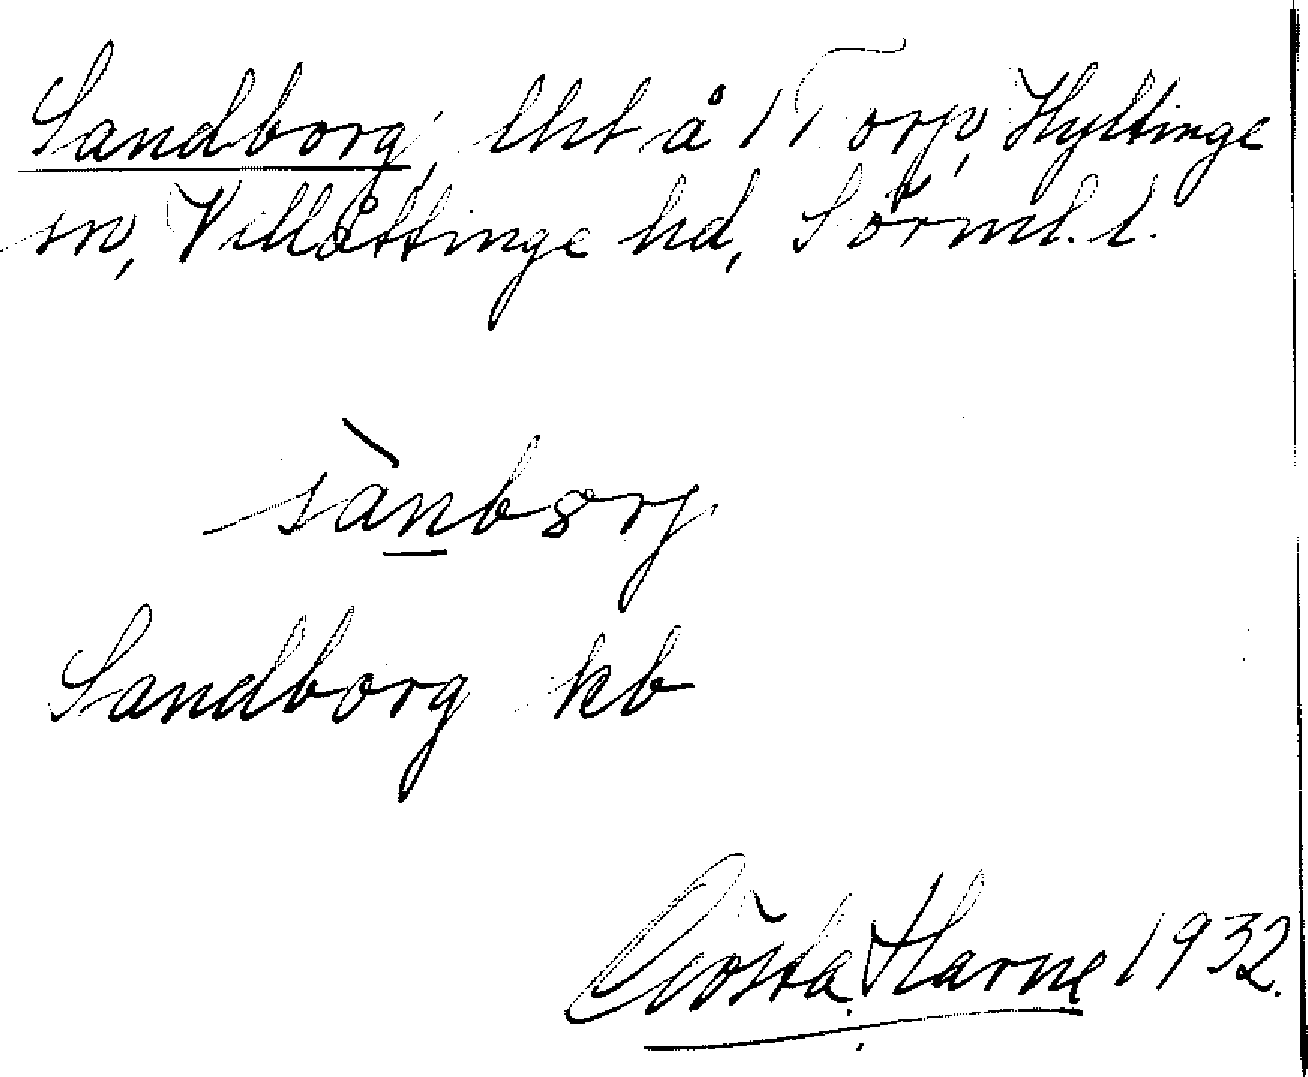 Sandborg, lht å 1 Torp, Hyltinge
sn, Villåttinge hd, Sörml. l.
sànbɔrj
Sandborg kb
Gösta Harne 1932.